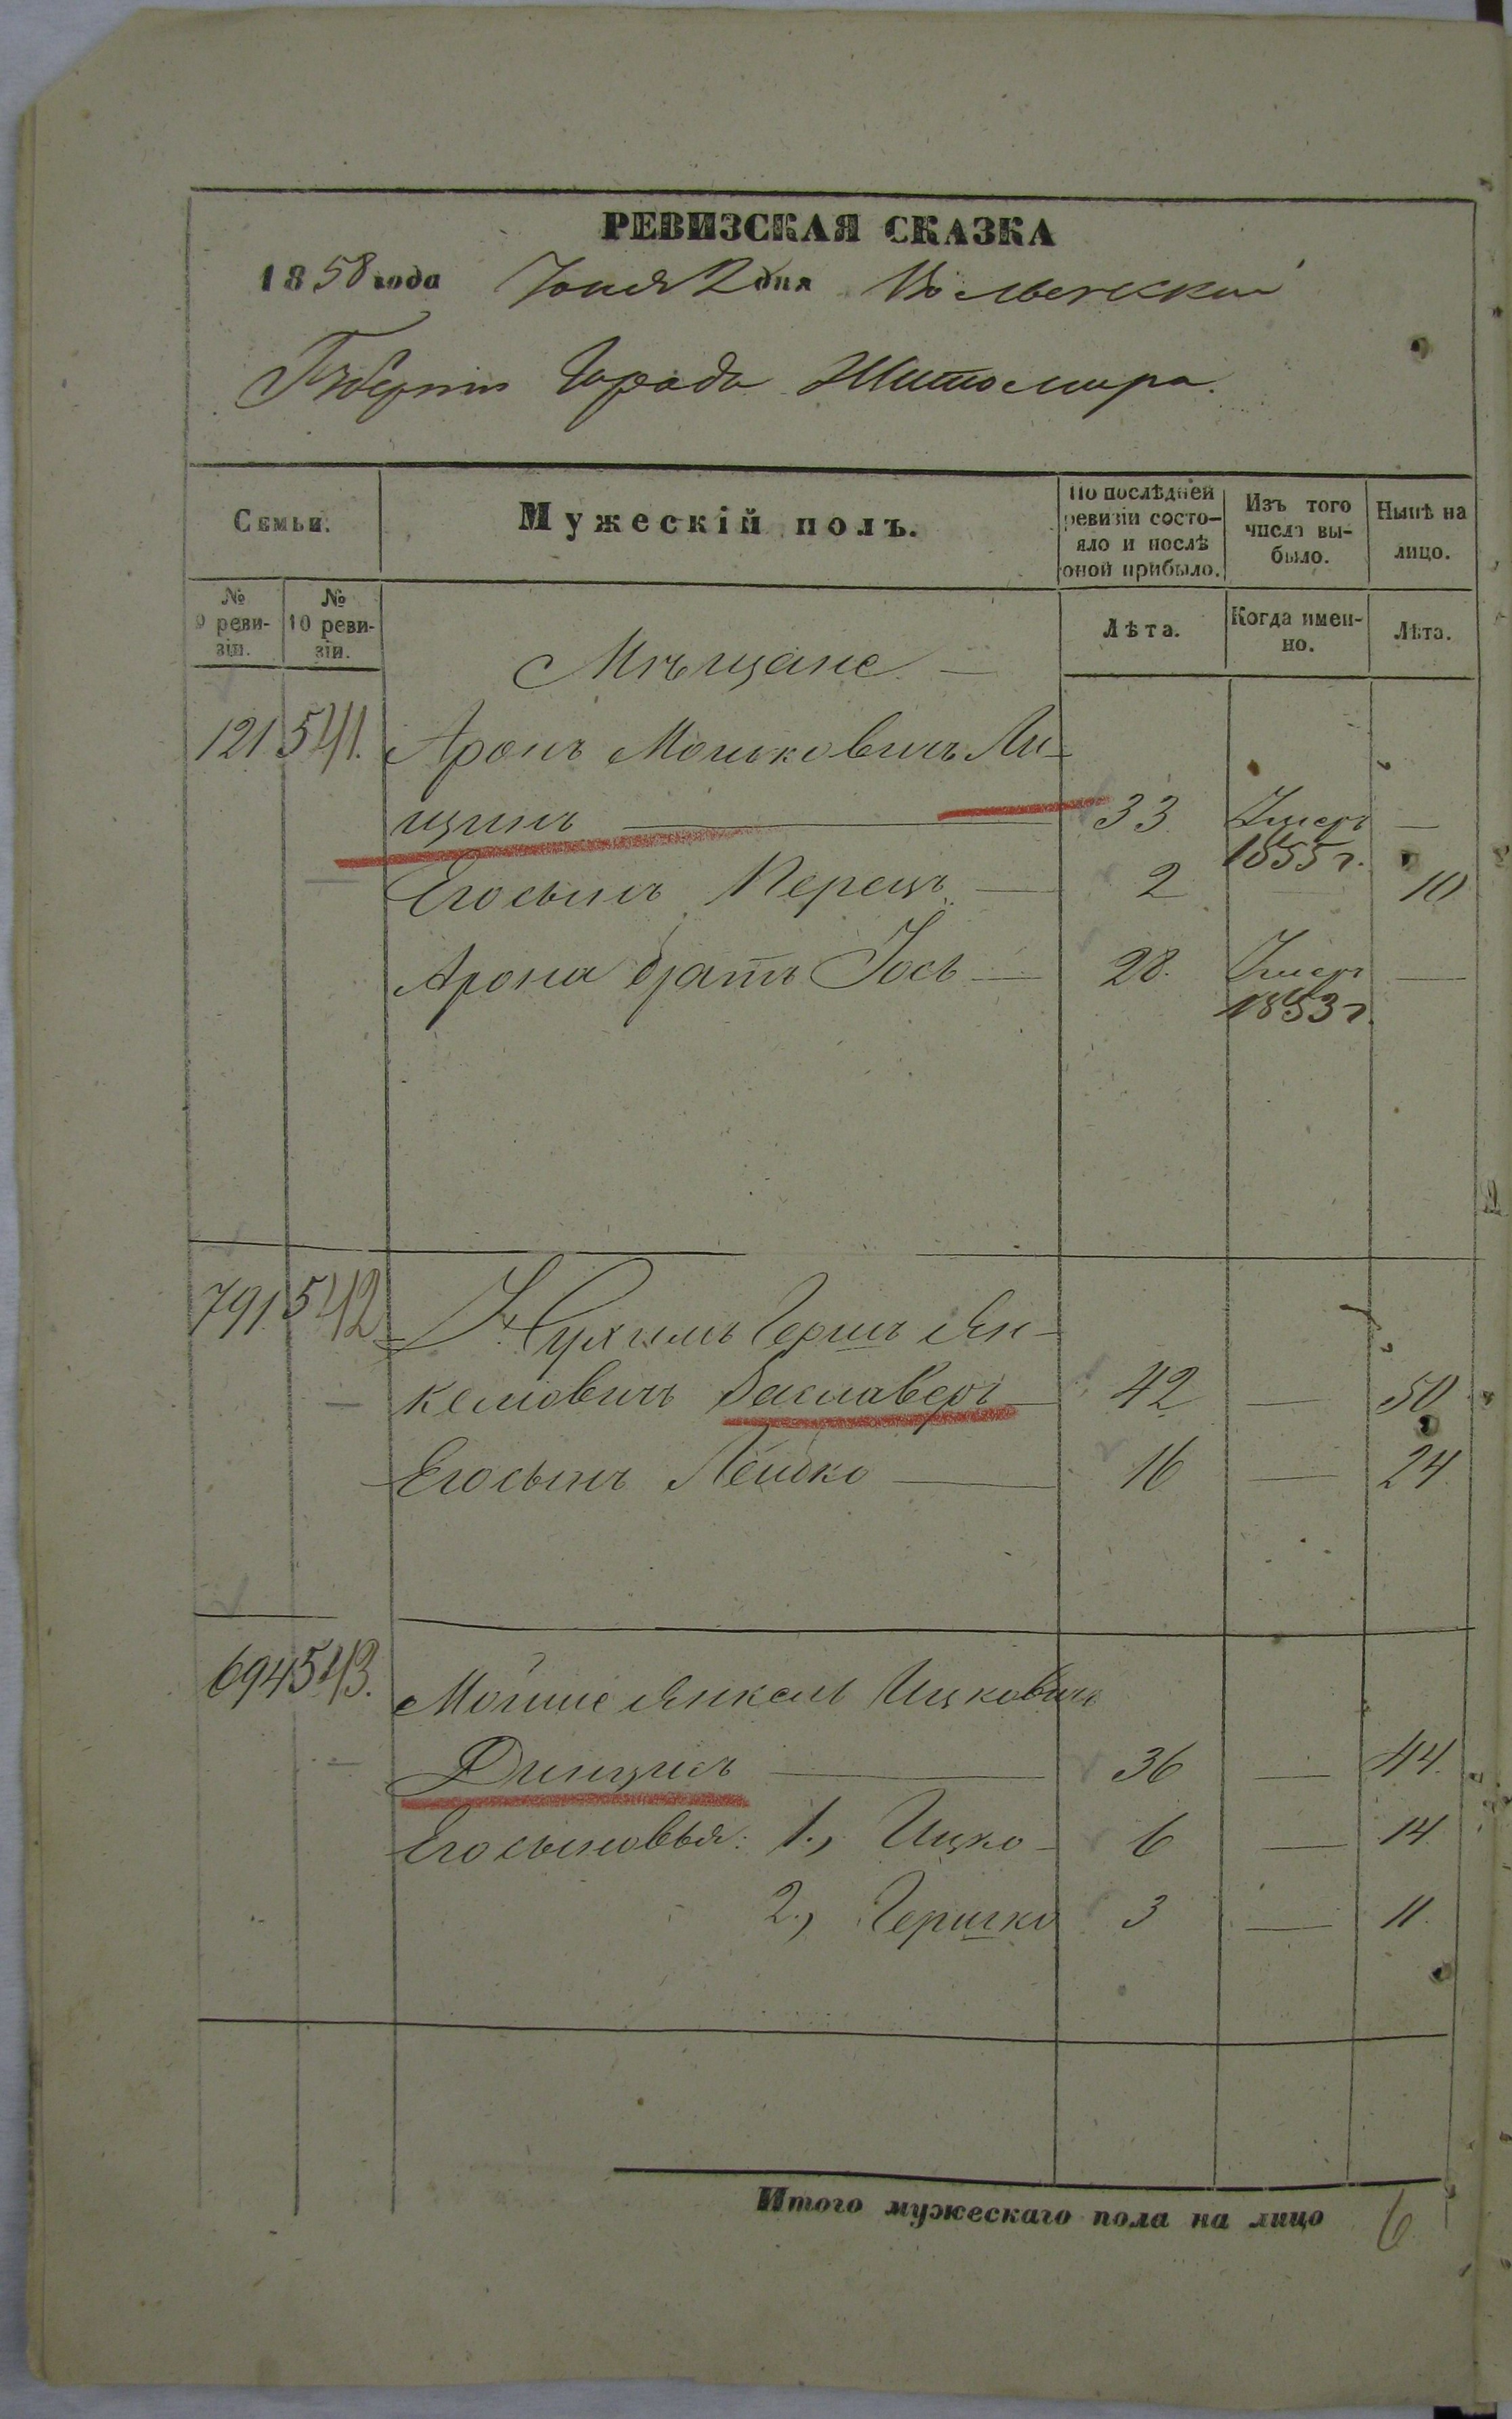 РЕВИЗСКАЯ СКАЗКА
1858 года Іюня 2 дня Волынской
Губерніи Города Житомира.
Семьи.
Мужескій полъ.
По послѣдней ревизіи состо-
яло и послѣ
оной прибыло.
Изъ того
числа вы-
было.
Нынѣ на
лицо.
№
9 реви-
зіи.
№
10 реви-
зіи.
Лѣта.
Когда имен-
но.
Лѣта.
Мѣщане
121 541. Аронъ Мошковичъ Ли-
щинъ 33 Умеръ 1855 г. —
Его сынъ Перецъ 2 — 10
Арона братъ Іось 28. Умеръ 1853 г. —
791 542 Нухимъ Гершъ Ян-
келювичъ Заславеръ 42 — 50
Его сынъ Лейбко 16 — 24
694 543. Мошие Янкель Ицковичъ
Динцисъ 36 — 44.
Его сыновья: 1., Ицко 6 — 14
2., Гершко 3 — 11.
Итого мужескаго пола на лицо 6